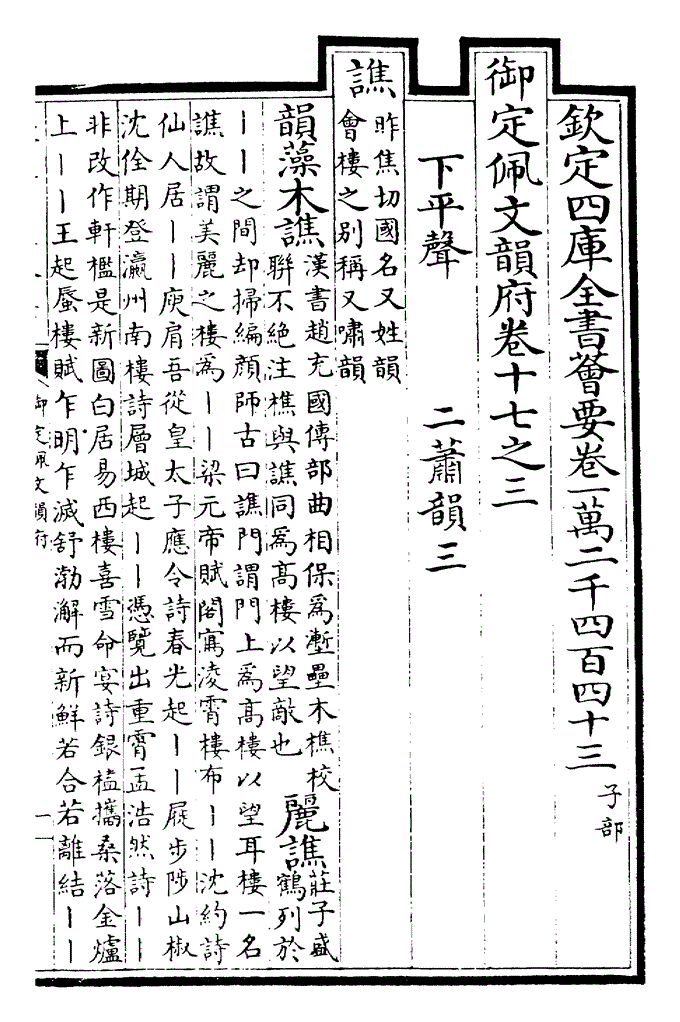 欽定四庫全書薈要卷一萬二千四百四十三 子部
御定佩文韻府卷十七之三
下平聲 二蕭韻三
譙 昨焦切國名又姓韻
會樓之別稱又嘯韻
韻藻 木譙 漢書趙充國傳部曲相保為塹壘木樵校
聯不絕注樵與譙同為髙樓以望敵也 麗譙 莊子盛
鶴列於
丨丨之間却掃編顔師古曰譙門謂門上為髙樓以望耳樓一名
譙故謂美麗之樓為丨丨梁元帝賦閣寫凌霄樓布丨丨沈約詩
仙人居丨丨庾肩吾從皇太子應令詩春光起丨丨屣步陟山椒
沈佺期登瀛州南樓詩層城起丨丨憑覽出重霄孟浩然詩丨丨
非改作軒檻是新圖白居易西樓喜雪命宴詩銀榼攜桑落金爐
上丨丨王起蜃樓賦乍明乍滅舒渤澥而新鮮若合若離結丨丨
御定佩文韻府 一